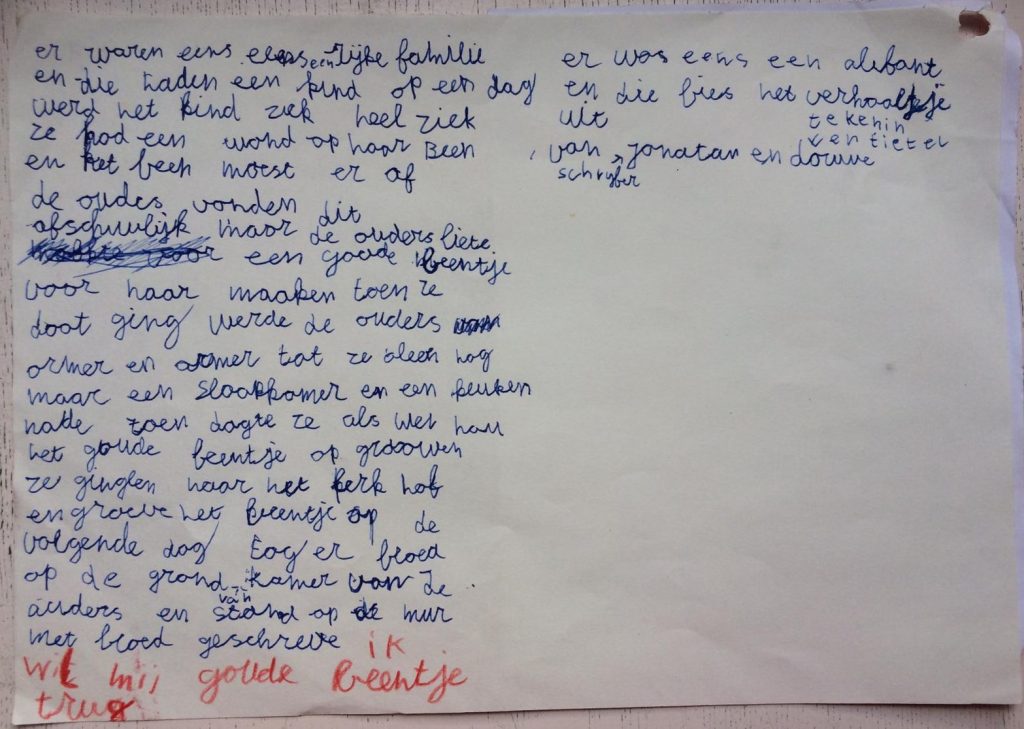 er waren eens een rijke familie
en die haden een kind op een dag
werd het kind ziek heel ziek
ze had een wond op haar Been
en het been moest er af
de oudes vonden dit
afschuwlijk maar de ouders liete
een goude beentje
voor haar maaken toen ze
doot ging werde de ouders
ormer en armer tot ze aleen nog
maar een slaapkamer en een keuken
hadde toen dagte ze als wei
het goude beentje op grooven
ze gingen naar het kerk hof
en groeve het Beentje op de
volgende dag Lag er bloed
op de grond kamer van de
van
auders en stand op de mur
met bloed geschreve ik
wil mij goude Beentje
trug
er was eens een alifant
en die blies het verhaaltje
uit
tekenin
ven tietel
van jonatan en douwe
schryber